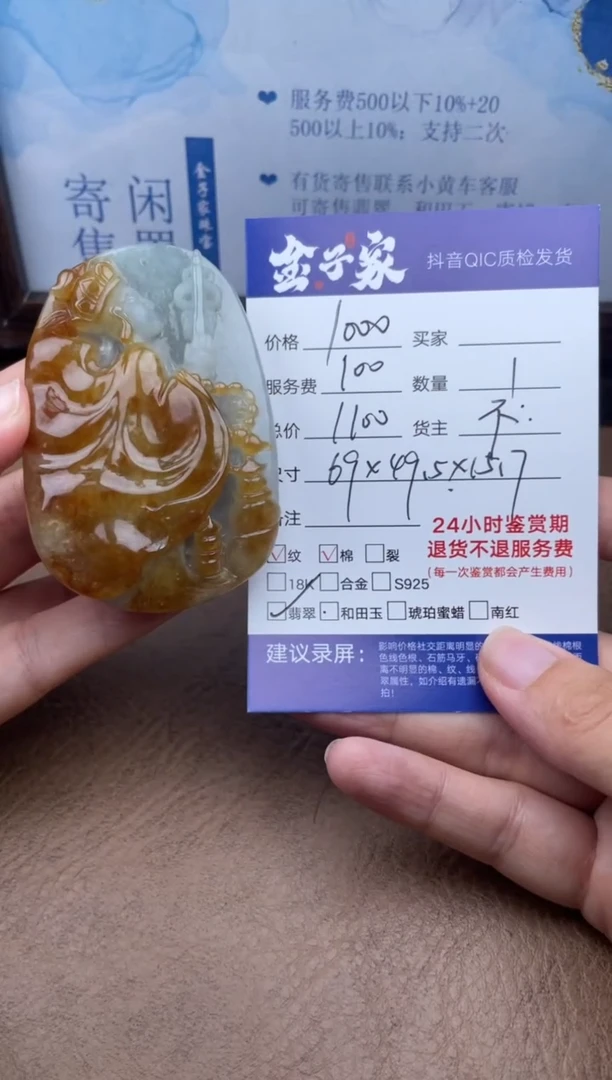 服务费500以下10%+20
500以上10%；支持二次
有货寄售联系小黄车客服
金子家珠宝
闲置
寄售
金子家
抖音QIC质检发货
价格 1000 买家
服务费 100 数量 1
总价 1100 货主
尺寸 69×49.5×15.7
备注
24小时鉴赏期
退货不退服务费
(每一次鉴赏都会产生费用)
纹 棉 裂
18K 合金 S925
翡翠 和田玉 琥珀蜜蜡 南红
建议录屏：
影响价格社交距离明显的
色线色根、石筋马牙、
离不明显的棉、纹、
翠属性，如介绍有遗漏
拍！